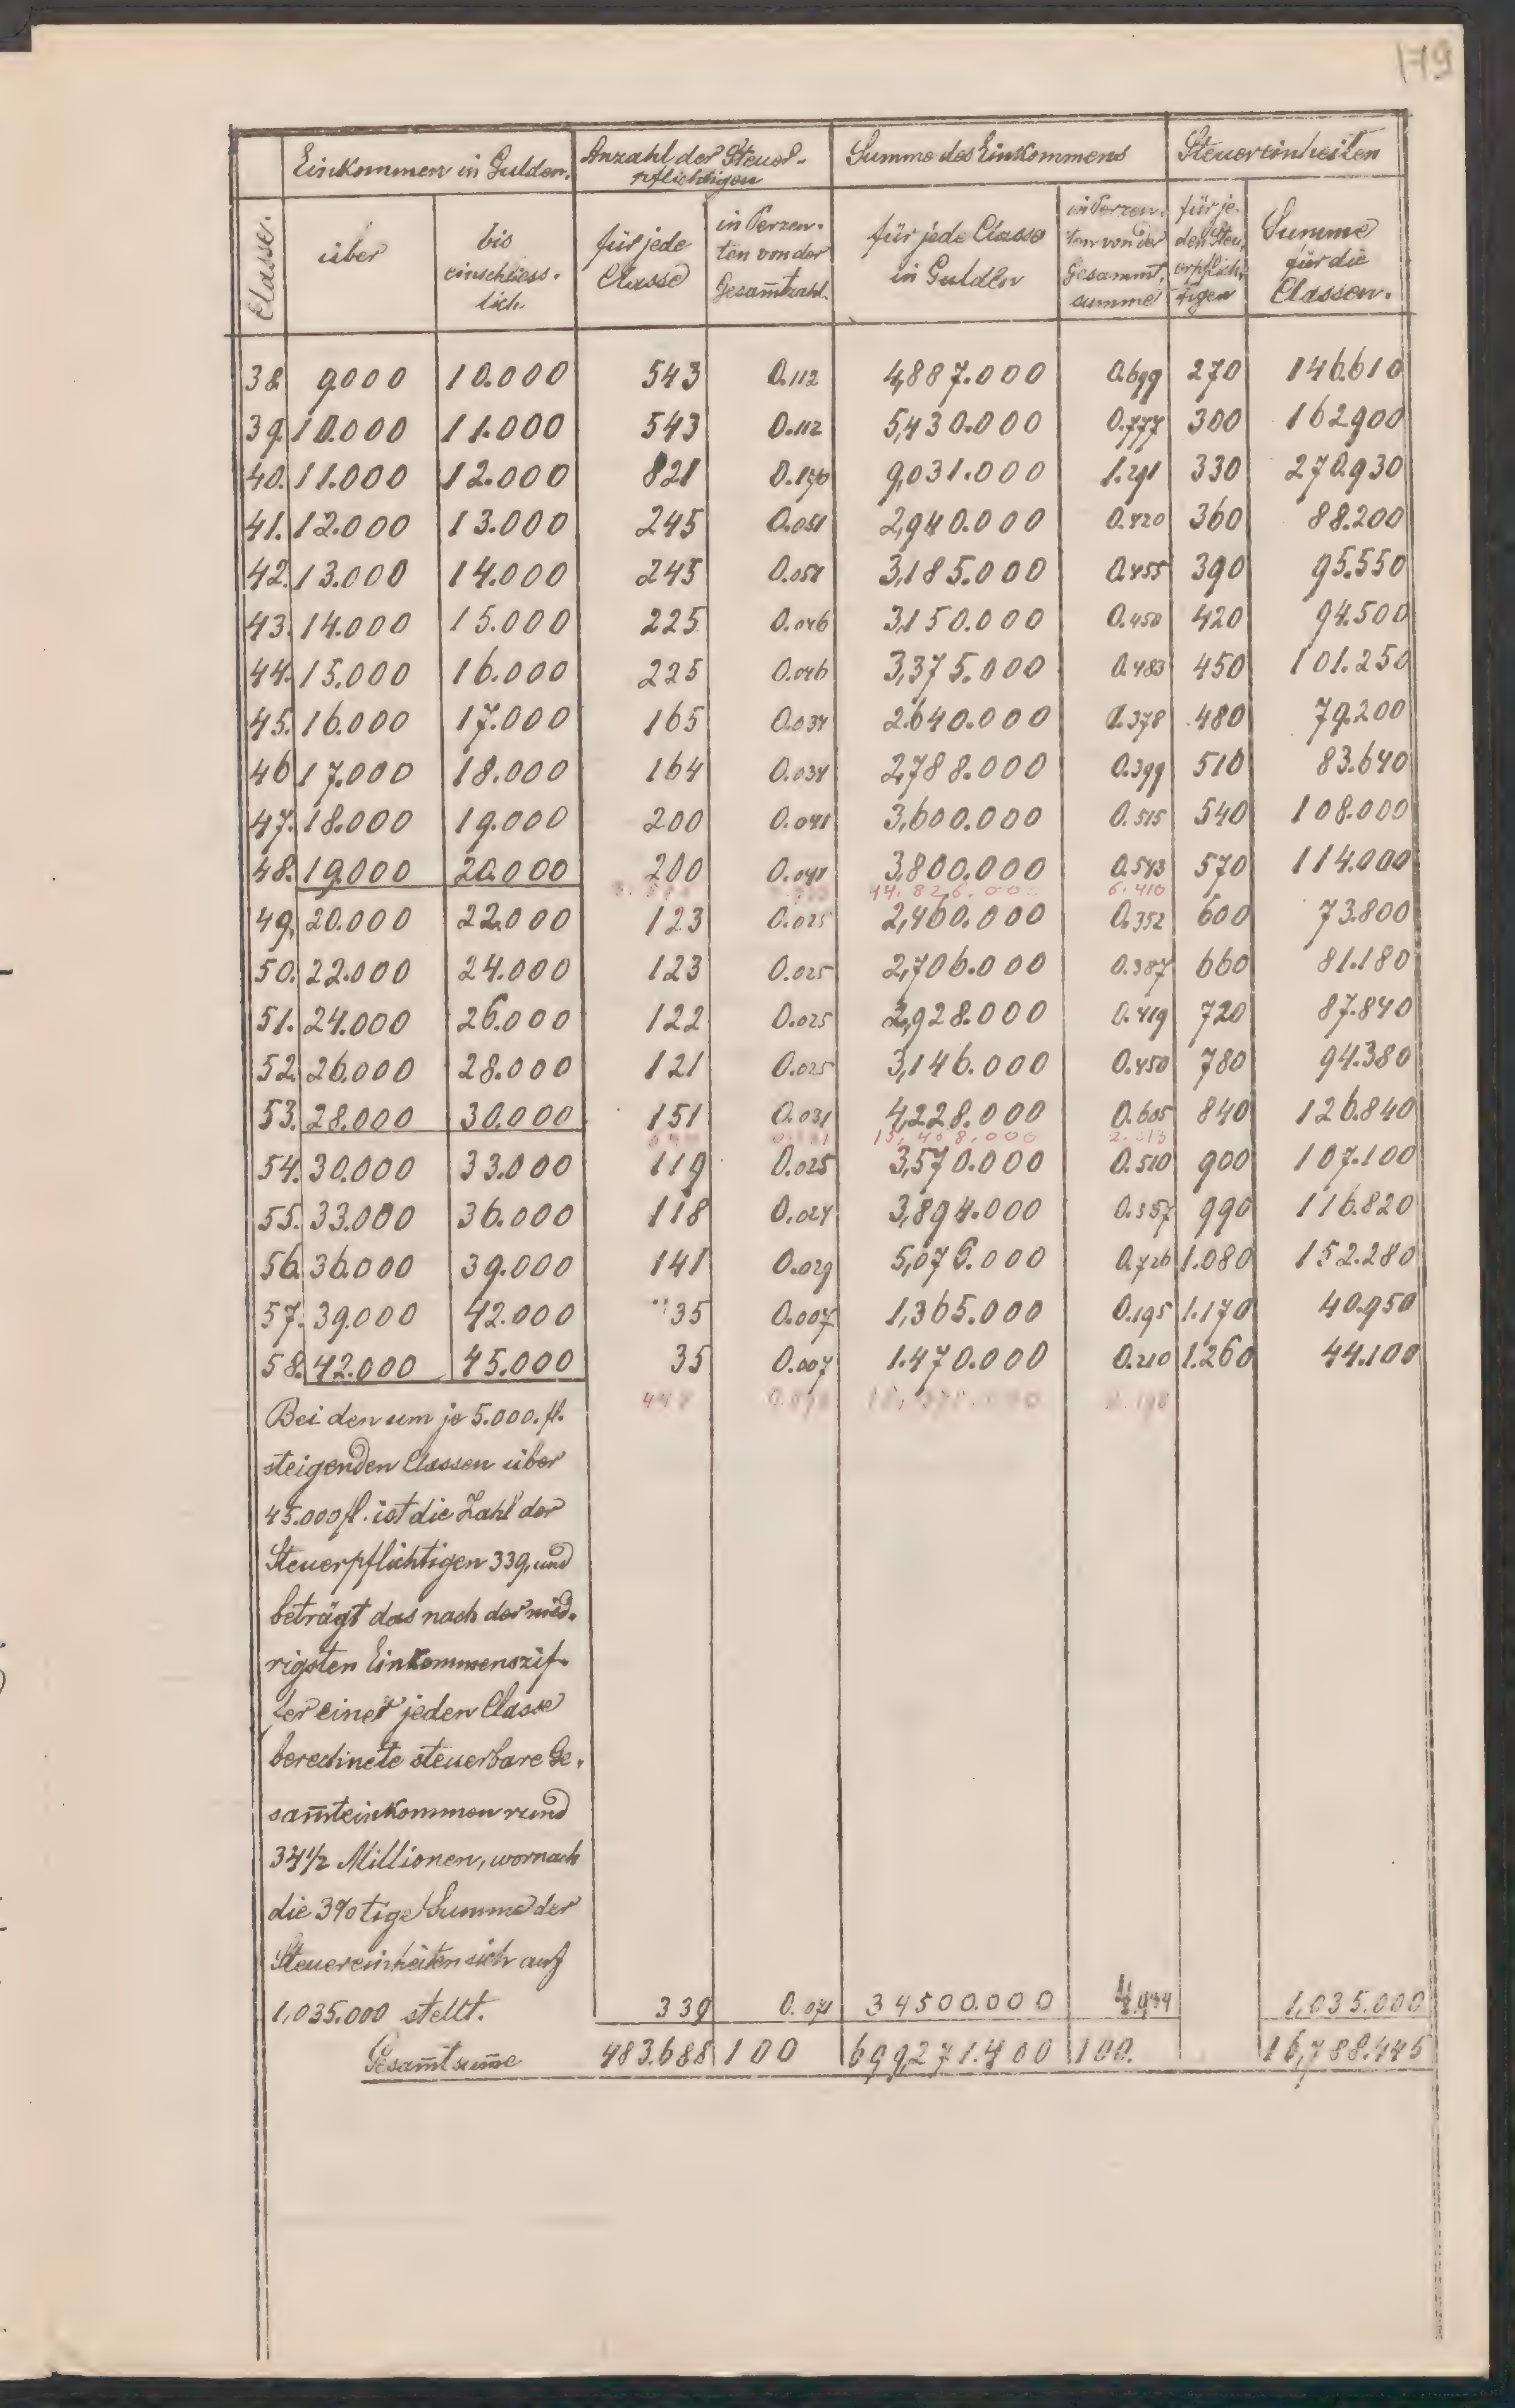 179
Einkommen in Gulden. Anzahl der Steuer- Summe des Einkommens Steuereinheiten
pflichtigen
Classe. über bis einschliess- lich. für jede Classe in Perzen- ten von der Gesam̄tzahl. für jede Classe in Gulden in Perzen- ten von der Gesammt- summe für je- den Steu- erpflich- tigen Summe für die Classen.
38. 9.000 10.000 543 0.112 4,887.000 0.699 270 146.610
39. 10.000 11.000 543 0.112 5,430.000 0.777 300 162.900
40. 11.000 12.000 821 0.170 9,031.000 1.291 330 270.930
41. 12.000 13.000 245 0.051 2,940.000 0.420 360 88.200
42. 13.000 14.000 245 0.051 3,185.000 0.455 390 95.550
43. 14.000 15.000 225 0.046 3,150.000 0.450 420 94.500
44. 15.000 16.000 225 0.046 3,375.000 0.483 450 101.250
45. 16.000 17.000 165 0.034 2.640.000 0.378 480 79.200
46 17.000 18.000 164 0.034 2,788.000 0.399 510 83.640
47. 18.000 19.000 200 0.041 3,600.000 0.515 540 108.000
48. 19.000 20.000 200 0.041 3,800.000 0.543 570 114.000
44.826.000 6.410
49. 20.000 22.000 123 0.025 2,460.000 0.352 600 73.800
50. 22.000 24.000 123 0.025 2,706.000 0.387 660 81.180
51. 24.000 26.000 122 0.025 2,928.000 0.419 720 87.840
52. 26.000 28.000 121 0.025 3,146.000 0.450 780 94.380
53. 28.000 30.000 151 0.031 4,228.000 0.605 840 126.840
15,468.000 2.213
54. 30.000 33.000 119 0.025 3,570.000 0.510 900 107.100
55. 33.000 36.000 118 0.024 3,894.000 0.557 990 116.820
56. 36.000 39.000 141 0.029 5,076.000 0.726 1.080 152.280
57. 39.000 42.000 35 0.007 1,365.000 0.195 1.170 40.950
58. 42.000 45.000 35 0.007 1.470.000 0.210 1.260 44.100
448
Bei den um je 5.000. fl.
steigenden Classen über
45.000 fl. ist die Zahl der
Steuerpflichtigen 339, und
beträgt das nach der nied-
rigsten Einkommenszif-
fer einer jeden Classe
berechnete steuerbare Ge-
sam̄teinkommen rund
34 1/2 Millionen, wornach
die 3%tige Summe der
Steuereinheiten sich auf
1,035.000 stellt. 339 0.071 34500.000 4.934 1,035.000
Gesam̄tsum̄e 483.688 100 699,271.400 100. 16,788.445